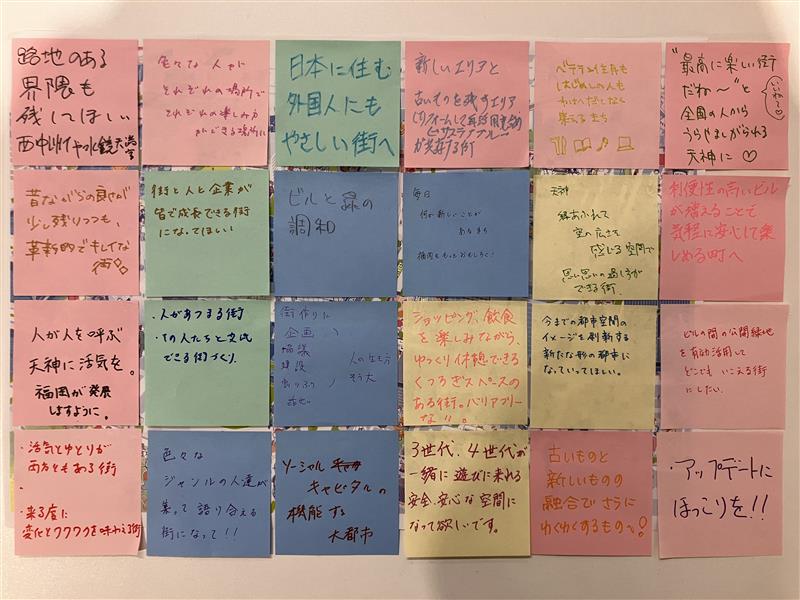 路地のある
界隈も
残してほしい
西中州や水鏡天満宮
色々な人々に
それぞれの場所で
それぞれの楽しみ方
ができる場所に
日本に住む
外国人にも
やさしい街へ
新しいエリアと
古いものを残すエリア
が共存する街
ベテラン住民も
はじめしの人も
わけへだてなく
集えるまち
"最高に楽しい街
だね〜"と
全国の人から
うらやましがられる
天神に♡
いいね〜
昔ながらの良さが
少し残りつつも、
革新的でキレイな
街
街と人と企業が
皆で成長できる街
になってほしい
ビルと緑の
調和
毎日
何か新しいことが
あるまち
福岡をもっとおもしろく!
天神
緑あふれて
空の広さを
感じる空間で
思い思いの過し方が
できる街.
利便性の高いビル
が増えることで
気軽に安心して楽
しめる町へ
人が人を呼ぶ
天神に活気を。
福岡が発展
しますように。
・人があつまる街
・の人たちと交流
できる街づくり.
街作りに
企画
協議
建設
人の生き方
ショッピング、飲食
を楽しみながら、
ゆっくり休憩できる
くつろぎスペースの
ある街。バリアフリー
な
今までの都市空間の
イメージを刷新する
新たな形の都市に
なっていってほしい。
ビルの間の公開緑地
を有効活用して
どこでも いこえる街
にしたい.
・活気とゆとりが
両方ともある街
・
・来る度に
変化とワクワクを味わえる街
色々な
ジャンルの人達が
集って語り合える
街になって!!
ソーシャル
キャピタルの
機能する
大都市
3世代、4世代が
一緒に遊びに来れる
安全、安心な空間に
なって欲しいです。
古いものと
新しいものの
融合でさらに
わくわくするものへ!
・アップデートに
ほっこりを!!